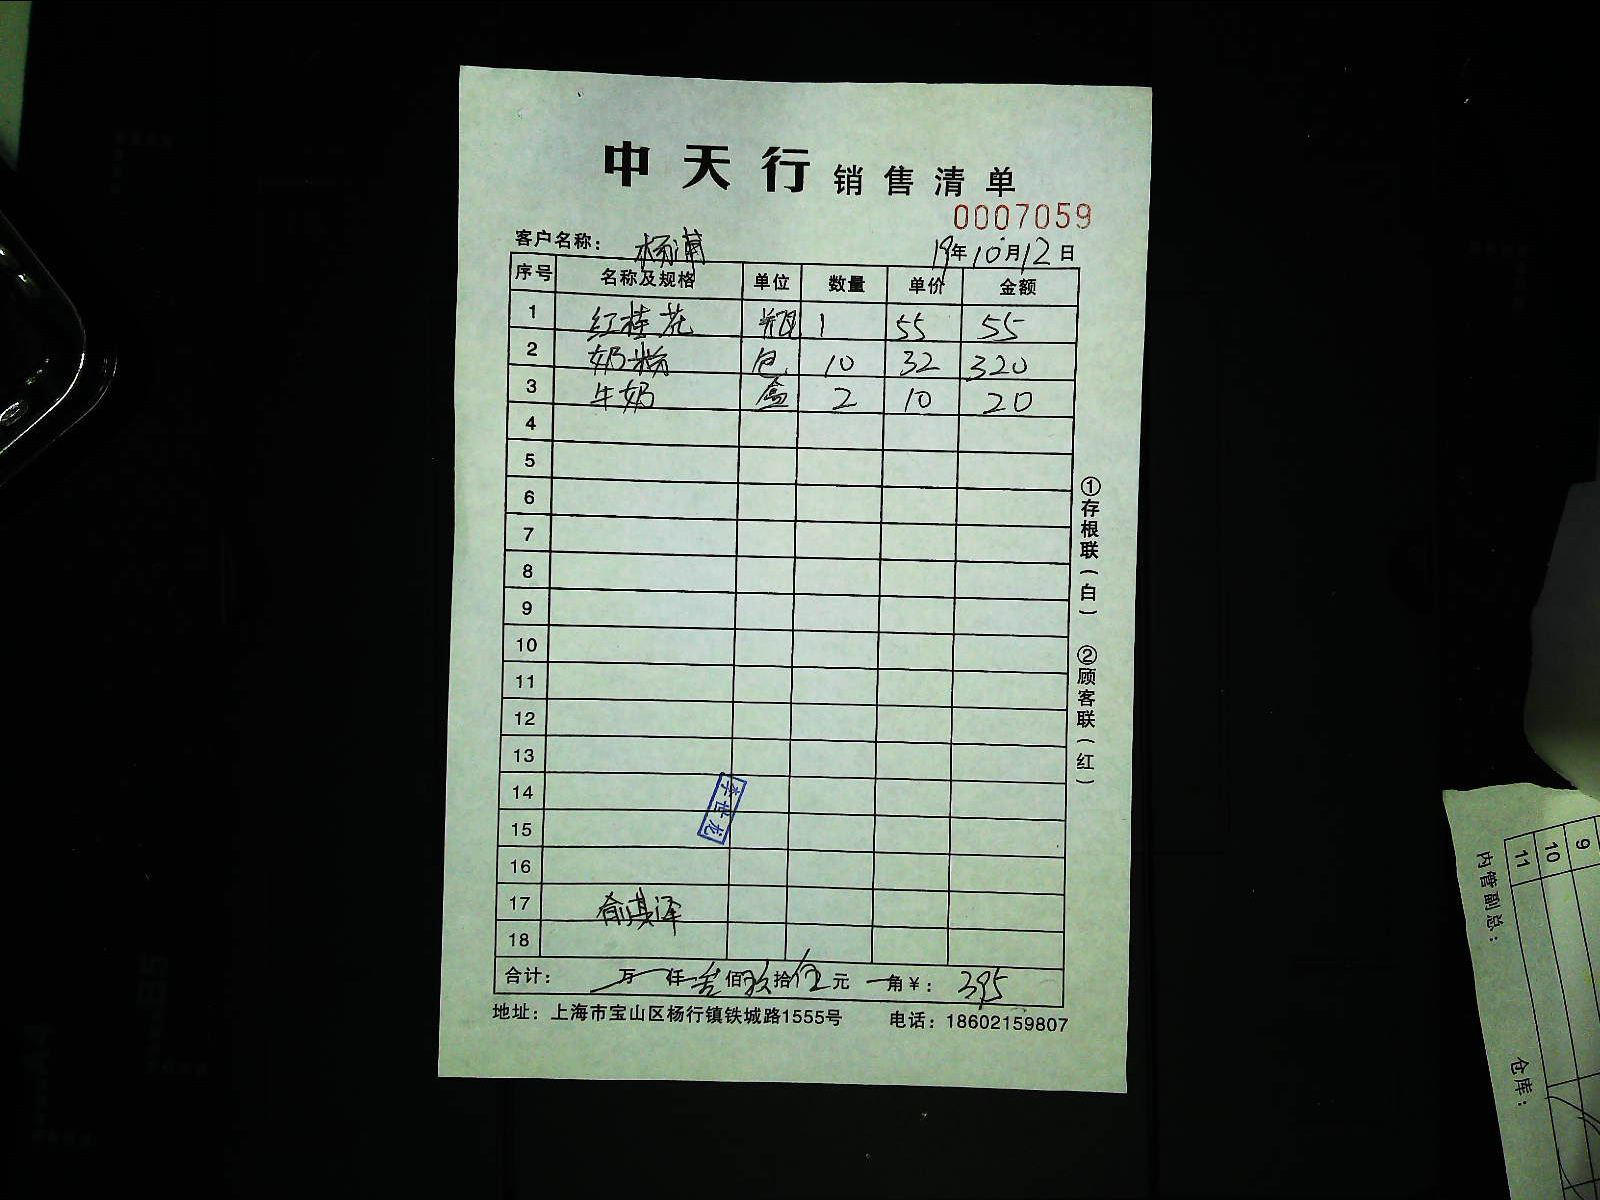 中天行 销售清单
0007059
客户名称： 杨浦 19年10月12日
序号 名称及规格 单位 数量 单价 金额
1 红桂花 瓶 1 55 55
2 奶粉 包 10 32 320
3 牛奶 盒 2 10 20
4
5
6
7
8
9
10
11
12
13
14
15
16
17 俞淇泽
18
李世龙
合计： 万 仟 叁佰玖拾伍元 角¥： 395
地址：上海市宝山区杨行镇铁城路1555号 电话：18602159807
①存根联（白） ②顾客联（红）
9
10
11
内管副总：
仓库：